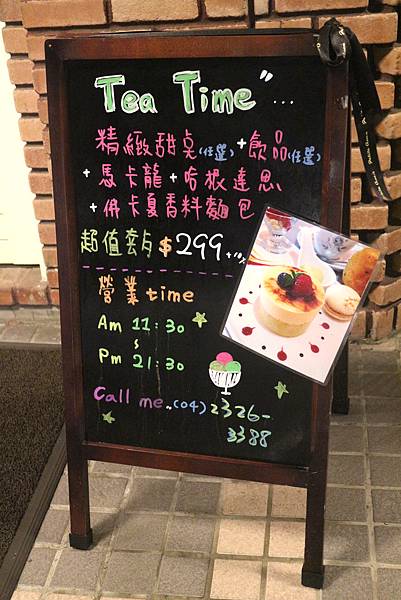 Tea Time" ...
精緻甜点(任選)+飲品(任選)
+馬卡龍+哈根達思
+佛卡夏香料麵包
超值套点$299+10%
營業time
Am 11:30
Pm 21:30
Call me..(04)2326-
3388